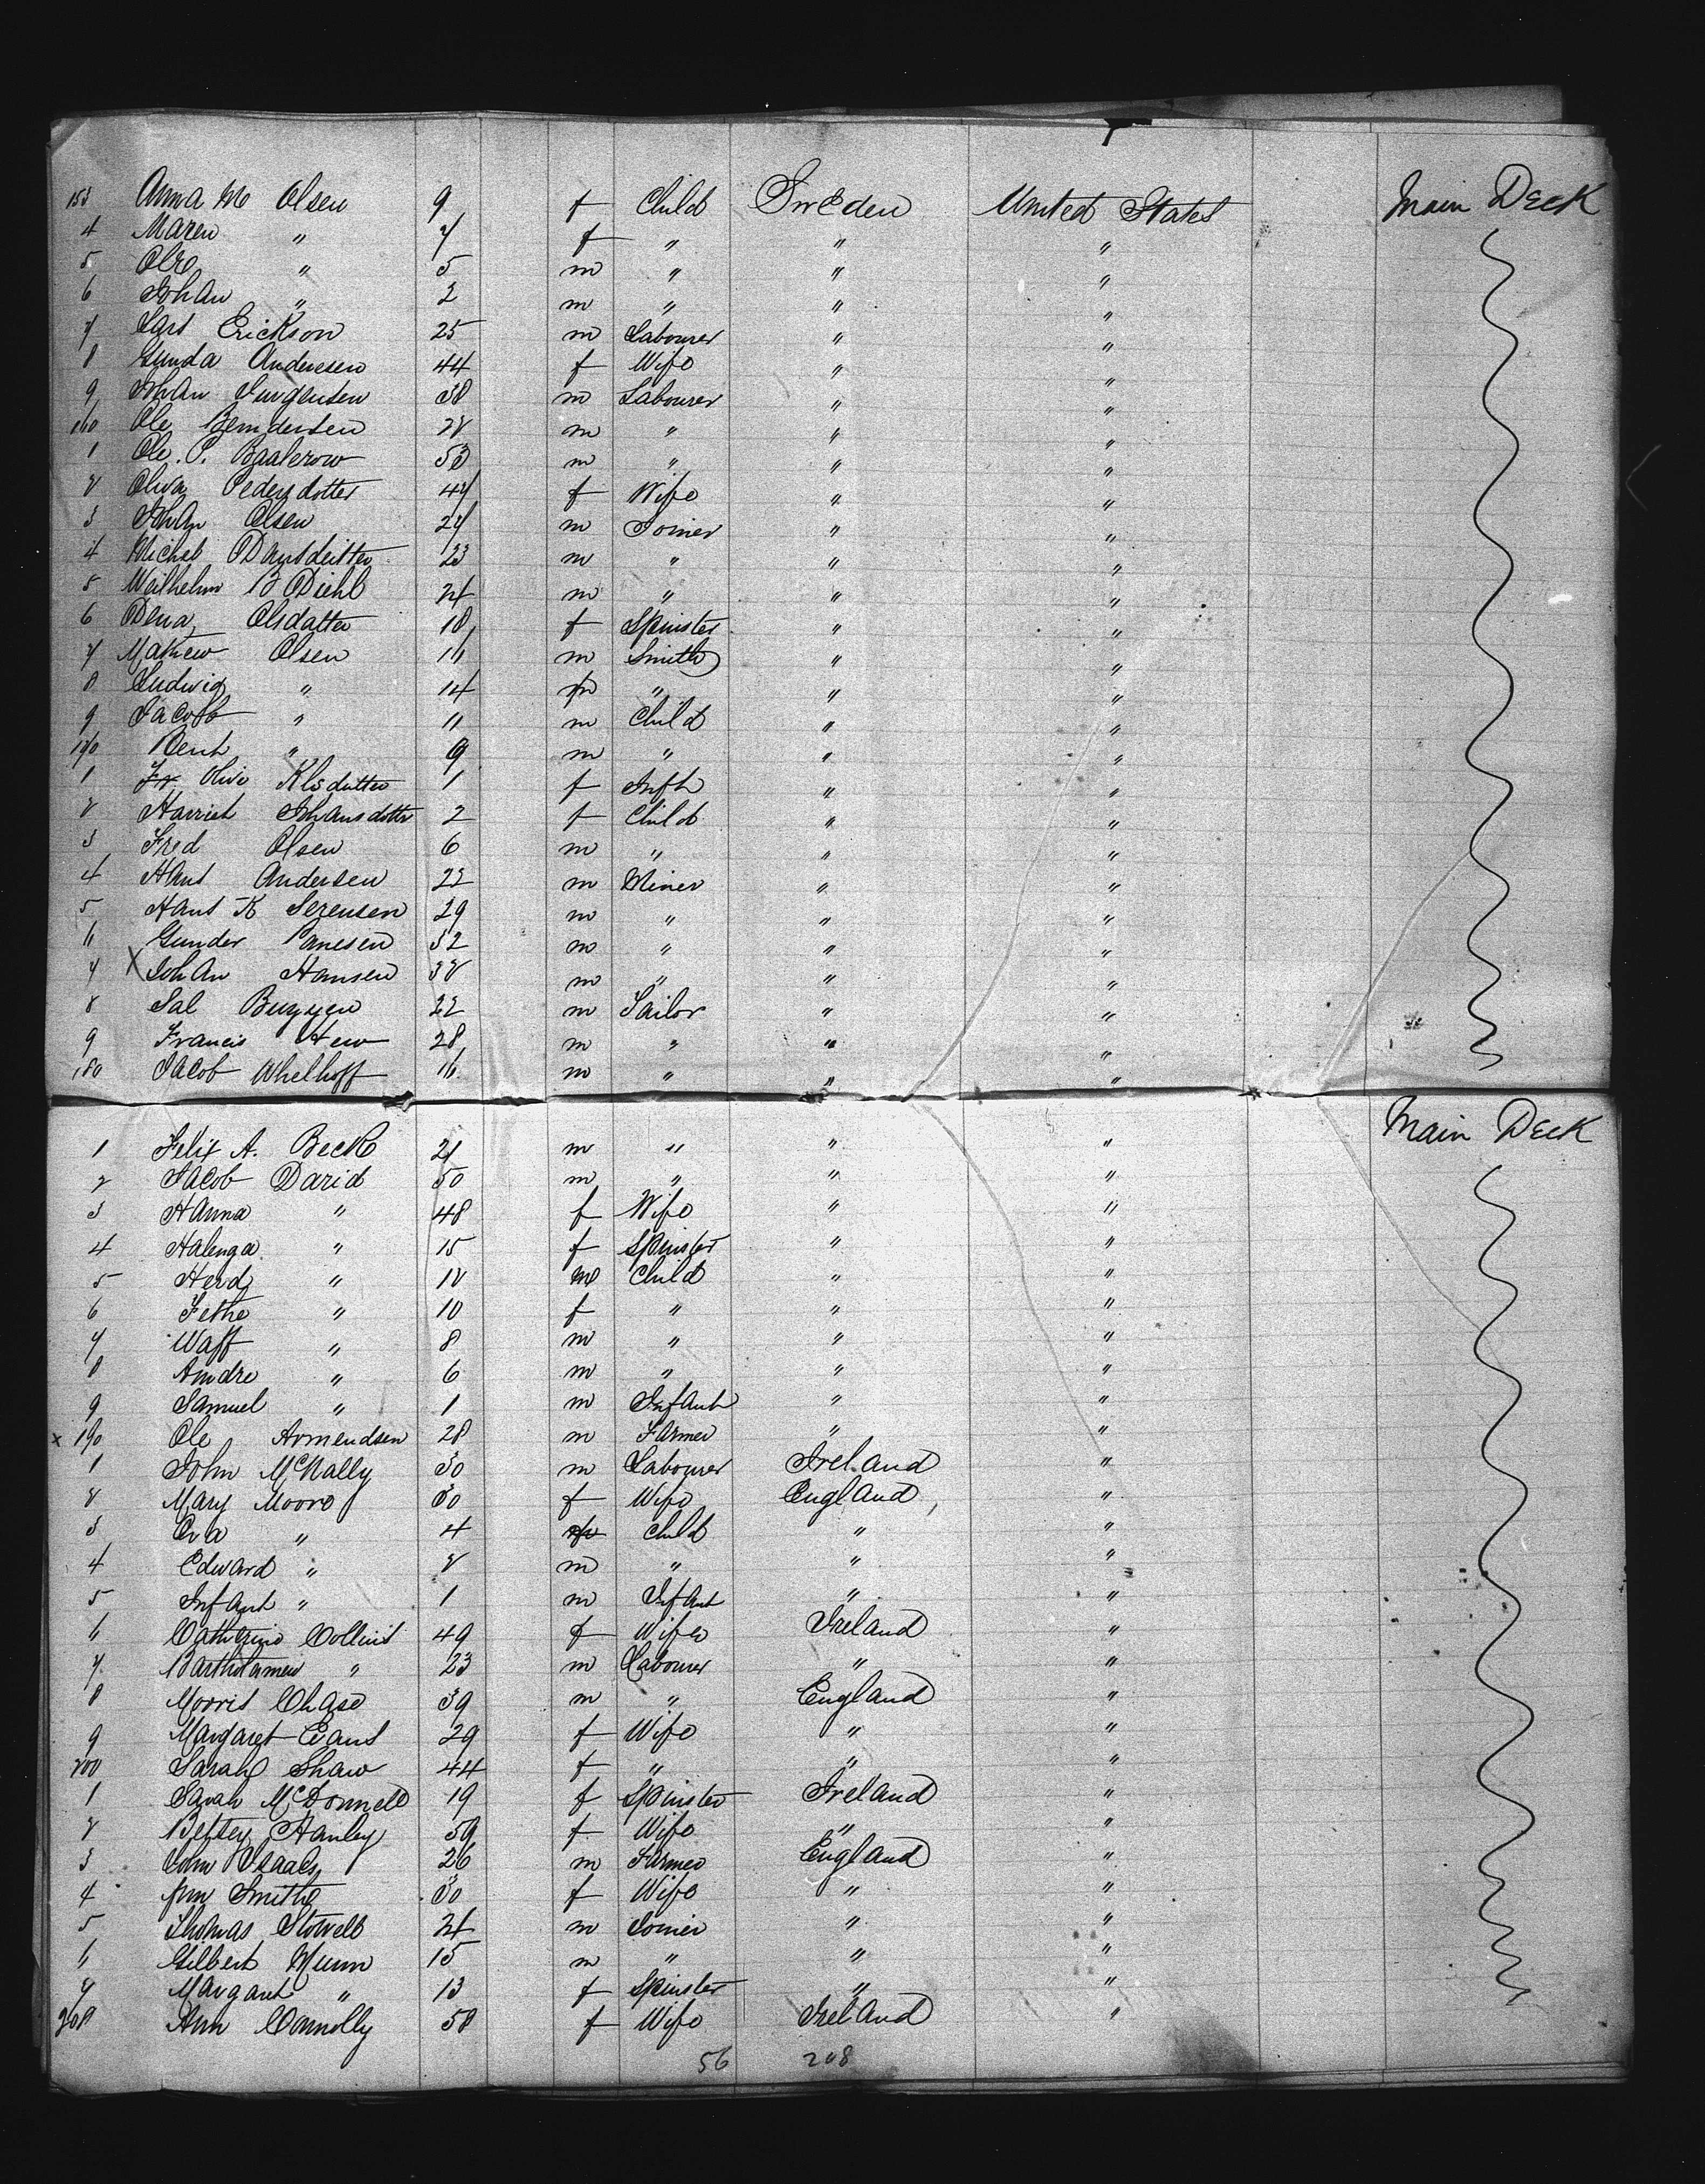 153 Anna M Olsen 9 f Child Sweden United States Main Deck
4 Maren " 7 f " " "
5 Ole " 5 m " " "
6 Johan " 2 m " " "
7 Lars Erickson 25 m Labourer " "
8 Gunda Andersen 44 f Wife " "
9 Johan Jurgensen 38 m Labourer " "
160 Ole 28 m " " "
1 Ole. P. 53 m " " "
2 Oliva Pedersdotter 47 f Wife " "
3 Johan Olsen 27 m Joiner " "
4 Michel 23 m " " "
5 Wailhelm B Diehl 24 m " " "
6 Dena Olsdatter 18 f Spinster " "
7 Mathew Olsen 16 m Smith " "
8 Ludwig " 14 m " " "
9 Jacob " 11 m Child " "
170 " 9 m " " "
1 Olive 1 f Inft " "
2 Harriet Johansdotter 2 f Child " "
3 Fred Olsen 6 m " " "
4 Hans Andersen 22 m Miner " "
5 Hans K Serensen 29 m " " "
6 Gunder 32 m " " "
7 X Johan Hansen 32 m " " "
8 Sal 22 m Sailor " "
9 Francis Hew 28 m " " "
180 Jacob Whelhoff 16 m " " "
1 Felix A. Beck 21 m " " " Main Deck
2 Jacob David 50 m " " "
3 Hanna " 48 f Wife " "
4 Halenga " 15 f Spinster " "
5 Herd " 12 m Child " "
6 Fethe " 10 f " " "
7 Waff " 8 m " " "
8 Amdre " 6 m " " "
9 Samuel " 1 m Infant " "
x 190 Ole Armendsen 28 m Farmer " "
1 John McNally 30 m Labourer Ireland "
2 Mary Moore 30 f Wife England "
3 Eva " 4 f Child " "
4 Edward " 2 m " " "
5 Infant " 1 m Infant " "
6 Catherine Collins 49 f Wife Ireland "
7 Bartholamew " 23 m Labourer " "
8 Morris Chase 39 m " England "
9 Margaret Evans 29 f Wife " "
200 Sarah Shaw 44 f " " "
1 Sarah McDonnell 19 f Spinster Ireland "
2 Betsey Hanley 59 f Wife " "
3 John Isaacs 26 m Farmer England "
4 Ann Smith 30 f Wife " "
5 Thomas Stowell 24 m Joiner " "
6 Gilbert Munn 15 m " " "
7 Margaret " 13 f Spinster " "
208 Ann Connolly 58 f Wife Ireland "
56 208